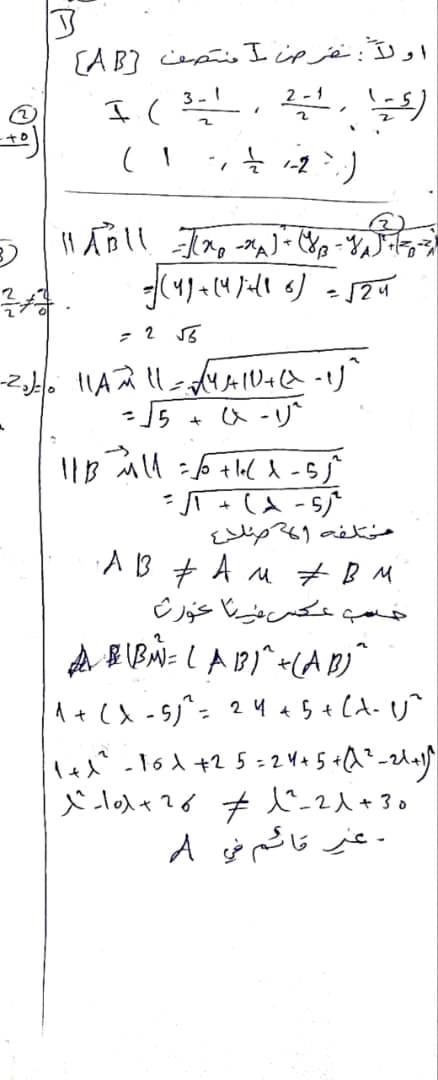 اولاً: نفرض I منتصف [AB]
I ( (3-1)/2 , (2-1)/2 , (1-5)/2 )
( 1 , 1/2 , -2 )
||AB|| = √((x_B - x_A)² + (y_B - y_A)² + (z_B - z_A)²
= √((4)+(4)+(16) = √24
= 2 √6
||AM|| = √4+1+(λ-1)²
= √5 + (λ-1)²
||BM|| = √0+1+(λ-5)²
= √1 + (λ-5)²
مختلفه الاضلاع
AB ≠ AM ≠ BM
حسب عكس فيتاغورث
(BM)² = (AB)² + (AB)²
1 + (λ-5)² = 24 + 5 + (λ-1)²
1+λ² - 10λ + 25 = 24+5+(λ²-2λ+1)
λ²-10λ+26 ≠ λ²-2λ+30
- غير قائم في A